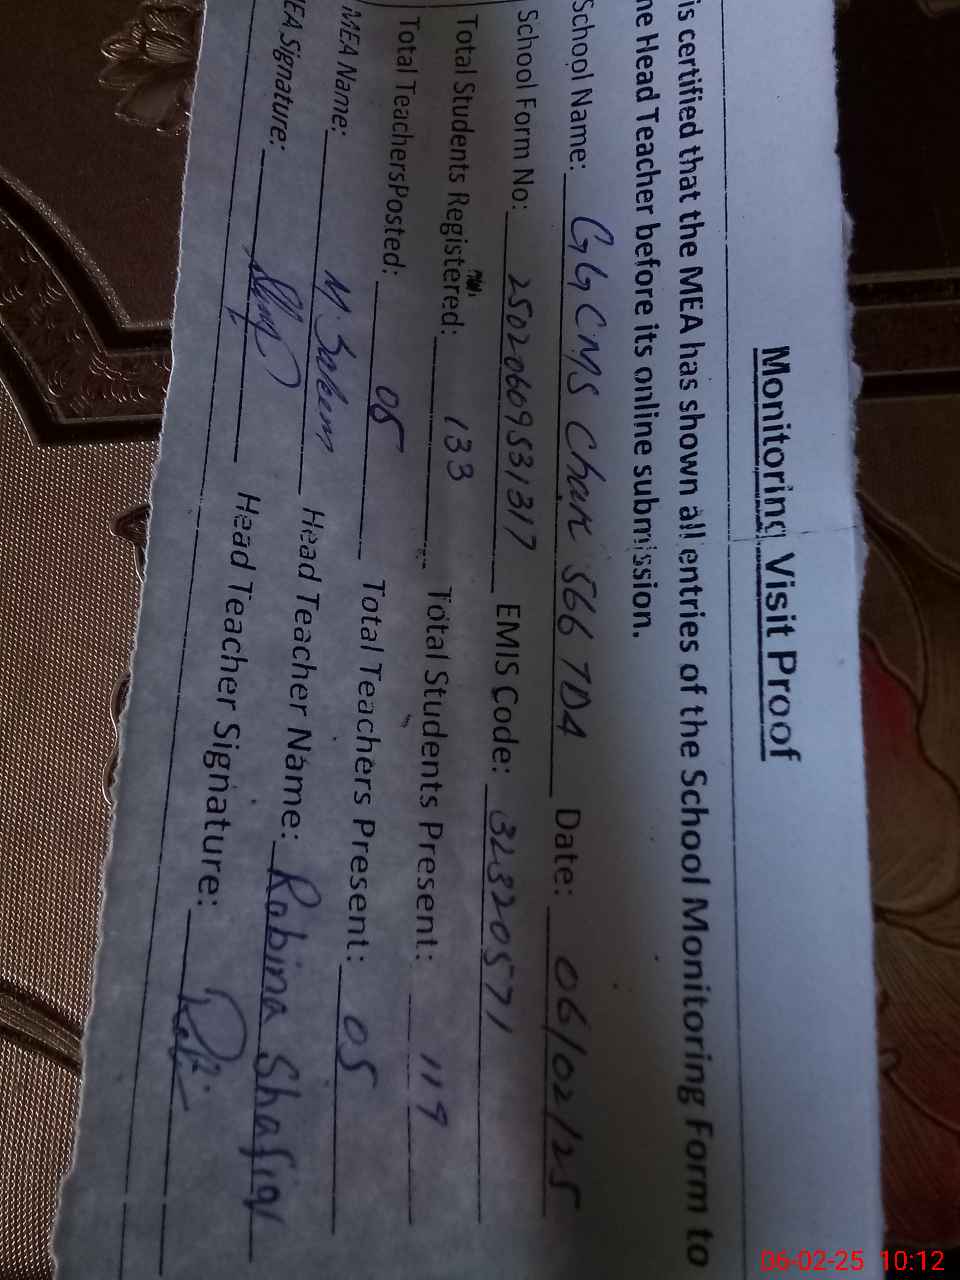 Monitoring Visit Proof
is certified that the MEA has shown all entries of the School Monitoring Form to
he Head Teacher before its online submission.
School Name: GGCMS Chak 566 TDA Date: 06/02/25
School Form No: 25020609531317 EMIS Code: 32320571
Total Students Registered: 133 Total Students Present: 119
Total TeachersPosted: 05 Total Teachers Present: 05
MEA Name: M. Saleem Head Teacher Name: Robina Shafiq
EA Signature: Head Teacher Signature:
06-02-25 10:12